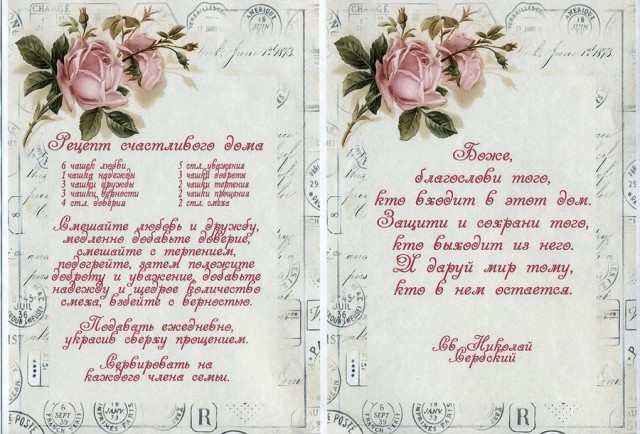 Рецепт счастливого дома
6 чашек любви
1 чашка надежды
3 чашки дружбы
3 чашки верности
4 стл. доверия
5 стл. уважения
3 чашки доброты
2 чашки терпения
2 чашки прощения
2 стл. смеха
Смешайте любовь и дружбу,
медленно добавьте доверие,
смешайте с терпением,
подогрейте, затем положите
доброту и уважение, добавьте
надежду и щедрое количество
смеха, взбейте с верностью.
Подавать ежедневно,
украсив сверху прощением.
Сервировать на
каждого члена семьи.
Боже,
благослови того,
кто входит в этот дом.
Защити и сохрани того,
кто выходит из него.
И даруй мир тому,
кто в нем остается.
Св. Николай
Сербский
CHARGÉ
AMERIQUE
18
JUIN
June 1st 1873
CHARGÉ
AMERIQUE
18
JUIN
June 1st 1873
JUIL
36
6
SEPT
39
18
JANV
73
R
POSTE
6
SEPT
39
18
JANV
73
R